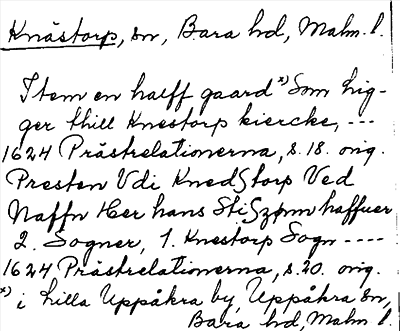 Knästorp, sn, Bara hd, Malm. l.
Item en halff gaard *) Som lig-
ger thill Knestorp kiercke, ---
1624 Prästrelationerna, s. 18. orig.
Presten Vdi KnedStorp Ved
Naffn Her hans StiSzønn haffuer
2. Sogner, 1. Knestorp Sogn ----
1624 Prästrelationerna, s. 20. orig.
*) i Lilla Uppåkra by, Uppåkra sn,
Bara hd, Malm l.